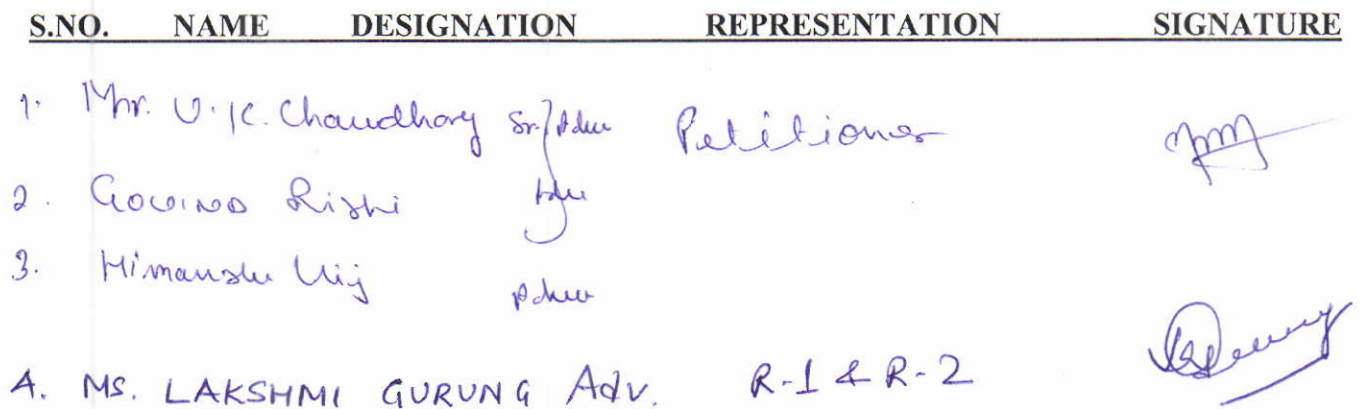 S.NO. NAME DESIGNATION REPRESENTATION SIGNATURE
1. Mr. U.K. Chaudhary Sr. Adv Petitioner
2. Govind Rishi Adv
3. Himanshu Vij Adv
4. MS. LAKSHMI GURUNG Adv. R-1 & R-2